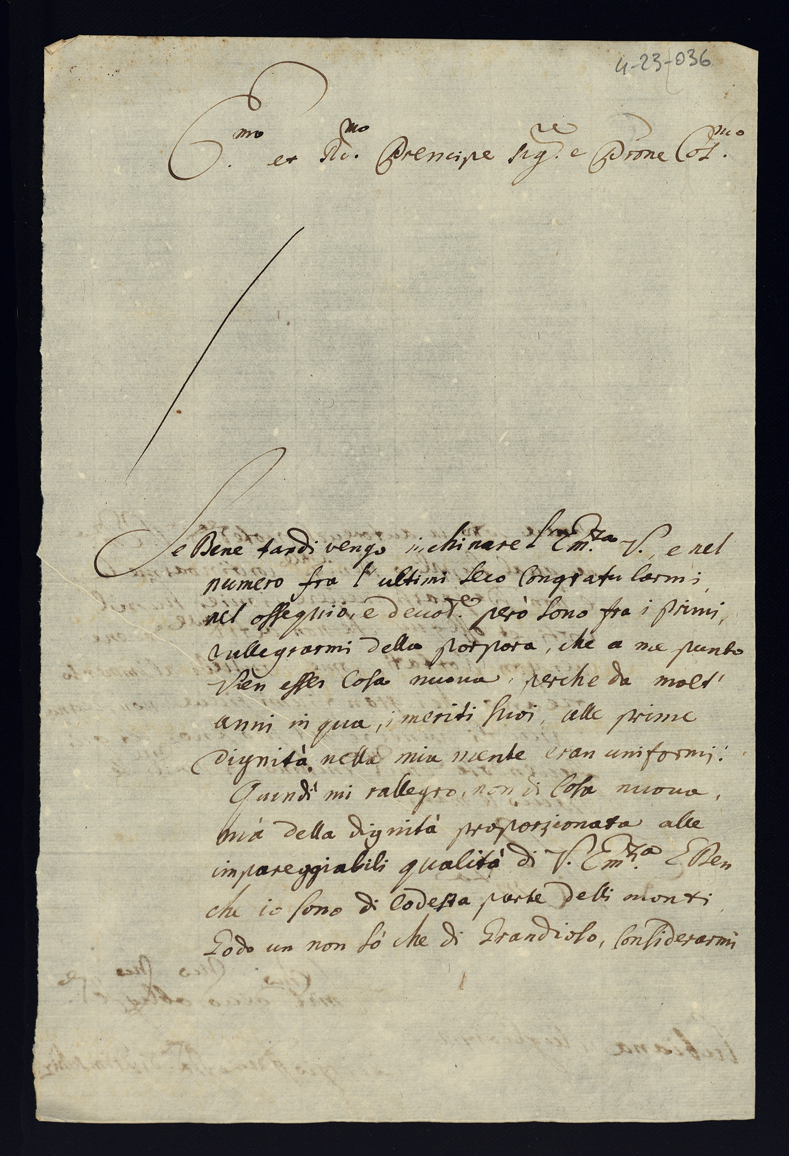 4-23-036
E.mo et Re.mo Prencipe Sig.re e Prone Col.mo
Se Bene tardi vengo inchinare l'Em.za V., e nel
numero fra l'ultimi seco congratularmi,
nel ossequio, e devot.e però sono fra i primi,
rallegrarmi della porpora, che a me punto
vien esser cosa nuova, perche da molt'
anni in qua, i meriti suoi, alle prime
dignità nella mia mente eran uniformi:
Quindi mi rallegro, non di cosa nuova,
mà della dignità proporzionata alle
impareggiabili qualità di V. Em.za E Ben
che io sono di codesta parte delli monti,
Godo un non sò che di Grandioso, considerarmi